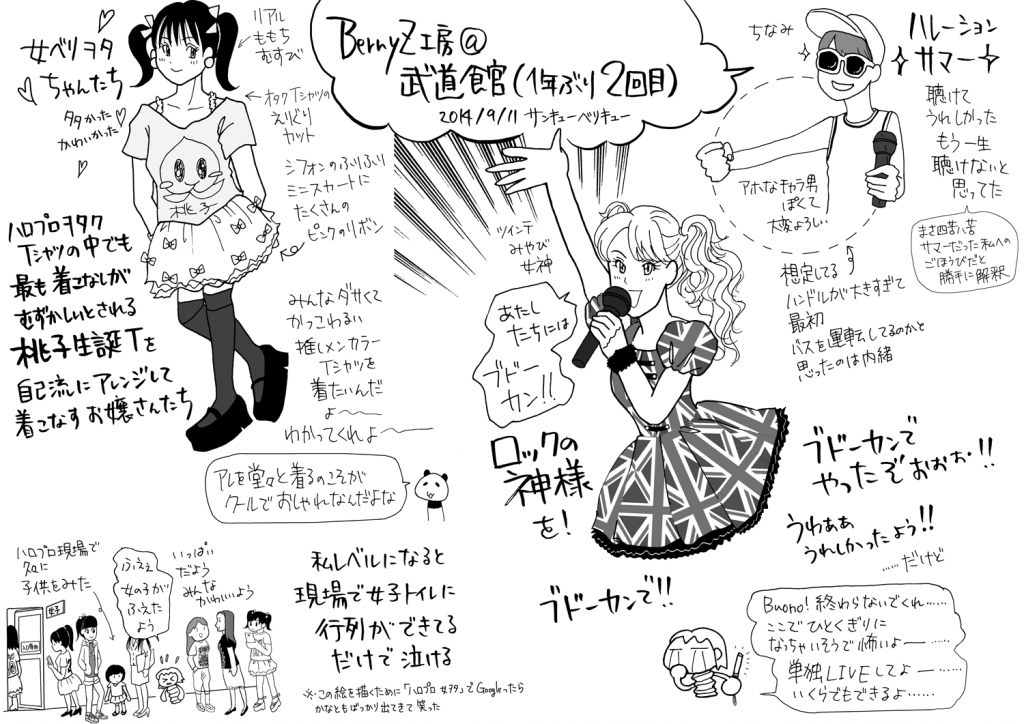 BerryZ工房@
武道館(1年ぶり2回目)
2014/9/11 サンキューベリキュー
女ベリヲタ
ちゃんたち
タタかった
かわいかった
リアル
ももち
むすび
オタクTシャツの
えりぐり
カット
シフォンのふりふり
ミニスカートに
たくさんの
ピンクのリボン
桃子
ハロプロヲタク
Tシャツの中でも
最も着こなしが
むずかしいとされる
桃子生誕Tを
自己流にアレンジして
着こなすお嬢さんたち
みんなダサくて
かっこわるい
推しメンカラー
Tシャツを
着たいんだ
よ〜〜
わかってくれよ〜〜
アレを堂々と着るのこそが
クールでおしゃれなんだよな
ツインテ
みやび
女神
あたし
たちには
ブドー
カン!!
ロックの
神様
を!
ちなみ
ハレーション
サマー
聴けて
うれしかった
もう一生
聴けないと
思ってた
まさ四苦八苦
サマーだった私への
ごほうびだと
勝手に解釈
アホなキャラ男
ぽくて
大変よろしい
想定してる
ハンドルが大きすぎて
最初
バスを運転してるのかと
思ったのは内緒
ブドーカンで
やったぞおぉぉ!!
うわぁぁ
うれしかったよう!!
……だけど
ブドーカンで!!
Buono!終わらないでくれ……
ここでひとくぎりに
なっちゃいそうで怖いよー……
単独LIVEしてよー……
いくらでもできるよ……
ハロプロ現場で
久々に
子供をみた
女子
ふぇぇ
女の子が
ふえた
よう
いっぱい
だよう
みんな
かわいいよう
私レベルになると
現場で女子トイレに
行列ができてる
だけで泣ける
※この絵を描くために「ハロプロ 女ヲタ」でGoogleったら
かなともばっかり出てきて笑った